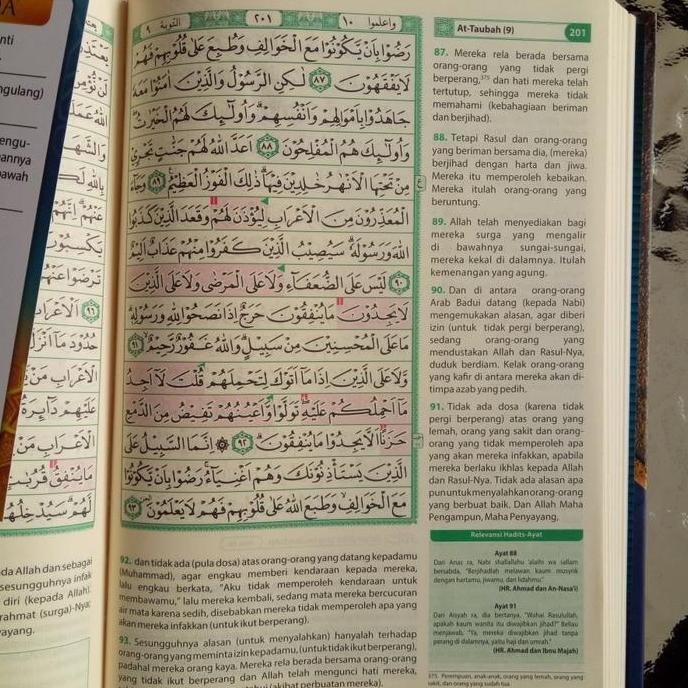 واعلموا ١٠
٢٠١
التوبة ٩
At-Taubah (9)
201
رَضُوْا بِاَنْ يَّكُوْنُوْا مَعَ الْخَوَالِفِ وَطُبِعَ عَلٰى قُلُوْبِهِمْ فَهُمْ
لَا يَفْقَهُوْنَ ﴿٨٧﴾ لٰكِنِ الرَّسُوْلُ وَالَّذِيْنَ اٰمَنُوْا مَعَهٗ
جَاهَدُوْا بِاَمْوَالِهِمْ وَاَنْفُسِهِمْ ۗ وَاُولٰۤىِٕكَ لَهُمُ الْخَيْرٰتُ ۖ
وَاُولٰۤىِٕكَ هُمُ الْمُفْلِحُوْنَ ﴿٨٨﴾ اَعَدَّ اللّٰهُ لَهُمْ جَنّٰتٍ تَجْرِيْ
مِنْ تَحْتِهَا الْاَنْهٰرُ خٰلِدِيْنَ فِيْهَا ۗ ذٰلِكَ الْفَوْزُ الْعَظِيْمُ ﴿٨٩﴾ وَجَاۤءَ
الْمُعَذِّرُوْنَ مِنَ الْاَعْرَابِ لِيُؤْذَنَ لَهُمْ وَقَعَدَ الَّذِيْنَ كَذَبُوا
اللّٰهَ وَرَسُوْلَهٗ ۗ سَيُصِيْبُ الَّذِيْنَ كَفَرُوْا مِنْهُمْ عَذَابٌ اَلِيْمٌ
﴿٩٠﴾ لَيْسَ عَلَى الضُّعَفَاۤءِ وَلَا عَلَى الْمَرْضٰى وَلَا عَلَى الَّذِيْنَ
لَا يَجِدُوْنَ مَا يُنْفِقُوْنَ حَرَجٌ اِذَا نَصَحُوْا لِلّٰهِ وَرَسُوْلِهٖ ۗ
مَا عَلَى الْمُحْسِنِيْنَ مِنْ سَبِيْلٍ ۗ وَاللّٰهُ غَفُوْرٌ رَّحِيْمٌ ﴿٩١﴾
وَلَا عَلَى الَّذِيْنَ اِذَا مَآ اَتَوْكَ لِتَحْمِلَهُمْ قُلْتَ لَآ اَجِدُ
مَآ اَحْمِلُكُمْ عَلَيْهِ ۖ تَوَلَّوْا وَّاَعْيُنُهُمْ تَفِيْضُ مِنَ الدَّمْعِ
حَزَنًا اَلَّا يَجِدُوْا مَا يُنْفِقُوْنَ ﴿٩٢﴾ ۞ اِنَّمَا السَّبِيْلُ عَلَى
الَّذِيْنَ يَسْتَأْذِنُوْنَكَ وَهُمْ اَغْنِيَاۤءُ ۚ رَضُوْا بِاَنْ يَّكُوْنُوْا
مَعَ الْخَوَالِفِ ۙ وَطَبَعَ اللّٰهُ عَلٰى قُلُوْبِهِمْ فَهُمْ لَا يَعْلَمُوْنَ ﴿٩٣﴾
92. dan tidak ada (pula dosa) atas orang-orang yang datang kepadamu
(Muhammad), agar engkau memberi kendaraan kepada mereka,
lalu engkau berkata, "Aku tidak memperoleh kendaraan untuk
membawamu," lalu mereka kembali, sedang mata mereka bercucuran
air mata karena sedih, disebabkan mereka tidak memperoleh apa yang
akan mereka infakkan (untuk ikut berperang).
93. Sesungguhnya alasan (untuk menyalahkan) hanyalah terhadap
orang-orang yang meminta izin kepadamu, (untuk tidak ikut berperang),
padahal mereka orang kaya. Mereka rela berada bersama orang-orang
yang tidak ikut berperang dan Allah telah mengunci hati mereka,
(akibat perbuatan mereka).
87. Mereka rela berada bersama
orang-orang yang tidak pergi
berperang,³⁷⁵ dan hati mereka telah
tertutup, sehingga mereka tidak
memahami (kebahagiaan beriman
dan berjihad).
88. Tetapi Rasul dan orang-orang
yang beriman bersama dia, (mereka)
berjihad dengan harta dan jiwa.
Mereka itu memperoleh kebaikan.
Mereka itulah orang-orang yang
beruntung.
89. Allah telah menyediakan bagi
mereka surga yang mengalir
di bawahnya sungai-sungai,
mereka kekal di dalamnya. Itulah
kemenangan yang agung.
90. Dan di antara orang-orang
Arab Badui datang (kepada Nabi)
mengemukakan alasan, agar diberi
izin (untuk tidak pergi berperang),
sedang orang-orang yang
mendustakan Allah dan Rasul-Nya,
duduk berdiam. Kelak orang-orang
yang kafir di antara mereka akan di-
timpa azab yang pedih.
91. Tidak ada dosa (karena tidak
pergi berperang) atas orang yang
lemah, orang yang sakit dan orang-
orang yang tidak memperoleh apa
yang akan mereka infakkan, apabila
mereka berlaku ikhlas kepada Allah
dan Rasul-Nya. Tidak ada alasan apa
pun untuk menyalahkan orang-orang
yang berbuat baik. Dan Allah Maha
Pengampun, Maha Penyayang,
Relevansi Hadits-Ayat
Ayat 88
Dari Anas ra, Nabi shallallahu 'alaihi wa sallam
bersabda, "Berjihadlah melawan kaum musyrik
dengan hartamu, jiwamu, dan lidahmu."
(HR. Ahmad dan An-Nasa'i)
Ayat 91
Dari Aisyah ra, dia bertanya, "Wahai Rasulullah,
apakah kaum wanita itu diwajibkan jihad?" Beliau
menjawab, "Ya, mereka diwajibkan jihad tanpa
perang di dalamnya, yaitu haji dan umrah."
(HR. Ahmad dan Ibnu Majah)
375. Perempuan, anak-anak, orang yang lemah, orang yang
sakit, dan orang yang sudah tua.